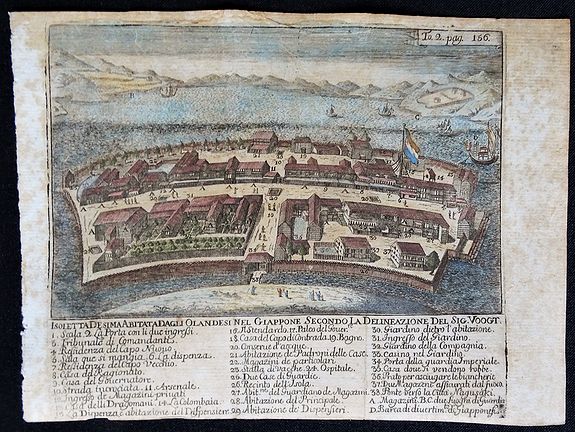 To. 2. pag. 156.
ISOLETTA DESIMA ABITATA DAGLI OLANDESI NEL GIAPPONE SECONDO LA DELINEAZIONE DEL SIG. VOOGT.
1. Scala 2. La Porta con li due ingressi
3. Tribunale di Comandanti.
4. Residenza del Capo Nuovo
5. Sala que si mangia. 6. La dispenza.
7. Residenza del Capo Vecchio.
8. Casa del Ragionale
9. Casa del Governatore.
10. Strada 14. Arsenale.
Ingresso de Magazzini privati
Casa delli Dragomani. 14. La Colombaia.
15. La Dispenza e abitazione del Dispensiere
16. Il Stendardo. 17. Palco del
18. Casa del Capo di Contrada. 19. Bagno.
20. Conserve d'acque.
21. Abitazione de Padroni delle Case
22. Magazini de particolari
23. Stalla di vacche. 24. Ospitale.
25. Due Case di Guardie.
26. Recinto dell'Isola.
27. del Guardiano de Magazini
28. Abitazione del Principale
29. Abitazione de Dispensieri.
30. Giardino dietro l'abitazione.
31. Ingresso del Giardino.
32. Giardino della Compagnia.
33. Casino nel Giardino.
34. Porta della guardia Imperiale.
35. Casa dove si vendono robbe.
36. Prato per asciugare le biancherie
37. Due Magazeni assicurati dal fuoco.
38. Ponte verso la Città Nagusaki.
A. Magazeni. B.C. due
D. Barca di divertim. di Giapponesi